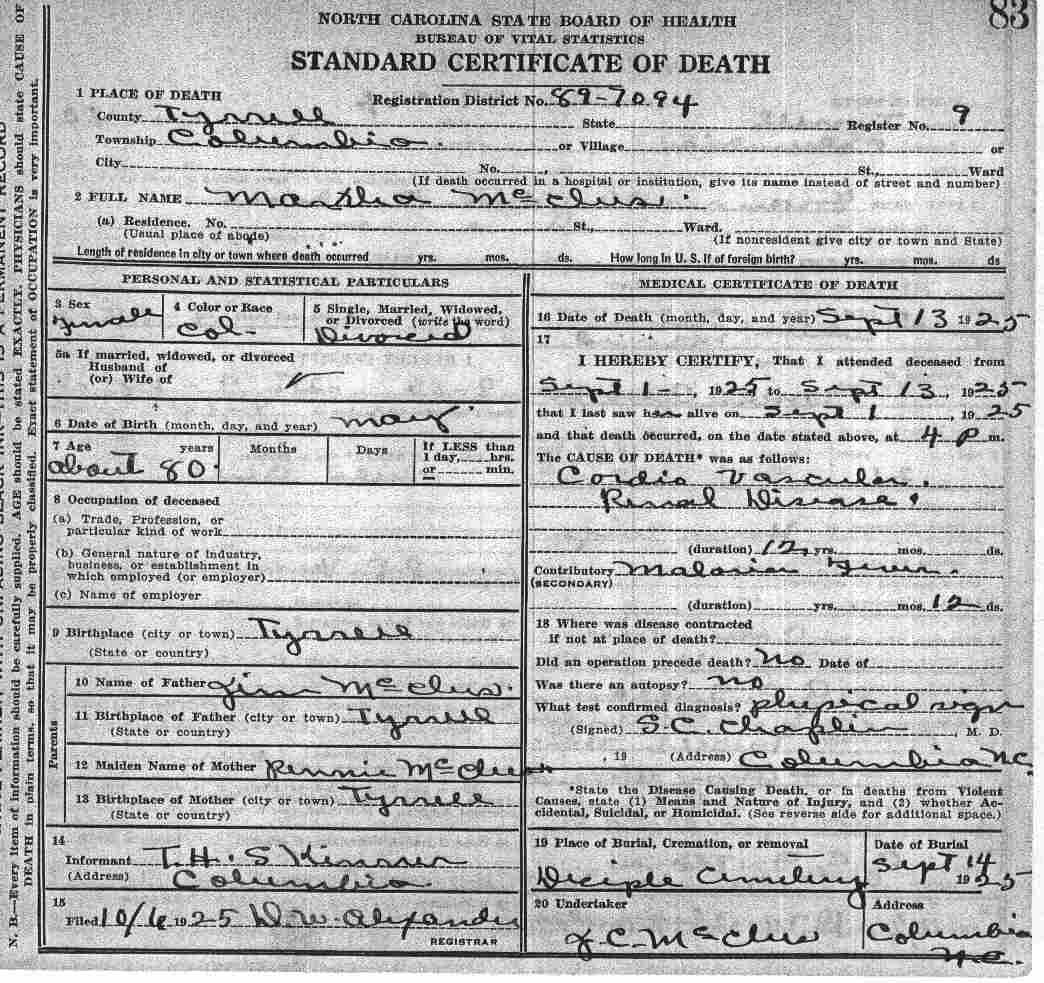 83
NORTH CAROLINA STATE BOARD OF HEALTH
BUREAU OF VITAL STATISTICS
STANDARD CERTIFICATE OF DEATH
1 PLACE OF DEATH
Registration District No. 89-7094
County Tyrrell State Register No. 9
Township Columbia. or Village or
City No. , St., Ward
(If death occurred in a hospital or institution, give its name instead of street and number)
2 FULL NAME Martha McClus.
(a) Residence. No. St., Ward.
(Usual place of abode) (If nonresident give city or town and State)
Length of residence in city or town where death occurred yrs. mos. ds. How long in U. S. if of foreign birth? yrs. mos. ds
PERSONAL AND STATISTICAL PARTICULARS
3 Sex
Female
4 Color or Race
Col-
5 Single, Married, Widowed,
or Divorced (write the word)
Divorced
5a If married, widowed, or divorced
Husband of
(or) Wife of
6 Date of Birth (month, day, and year) may
7 Age years Months Days If LESS than
1 day, hrs.
about 80. or min.
8 Occupation of deceased
(a) Trade, Profession, or
particular kind of work
(b) General nature of industry,
business, or establishment in
which employed (or employer)
(c) Name of employer
9 Birthplace (city or town) Tyrrell
(State or country)
Parents
10 Name of Father Jim McClus.
11 Birthplace of Father (city or town) Tyrrell
(State or country)
12 Maiden Name of Mother Pennie
13 Birthplace of Mother (city or town) Tyrrell
(State or country)
14
Informant T. H. Skinner
(Address) Columbia
15
Filed 10/6 1925 D. W. Alexander
REGISTRAR
MEDICAL CERTIFICATE OF DEATH
16 Date of Death (month, day, and year) Sept 13 1925
17
I HEREBY CERTIFY, That I attended deceased from
Sept 1-, 1925 to Sept 13, 1925
that I last saw her alive on Sept 1, 1925
and that death occurred, on the date stated above, at 4 P m.
The CAUSE OF DEATH* was as follows:
Cardio Vascular.
Renal Disease.
(duration) 12 yrs. mos. ds.
Contributory Malarian Fever.
(SECONDARY)
(duration) yrs. mos. 12 ds.
18 Where was disease contracted
if not at place of death?
Did an operation precede death? No Date of
Was there an autopsy? no
What test confirmed diagnosis? physical sign
(Signed) S. C. Chaplin, M. D.
, 19 (Address) Columbia NC.
*State the Disease Causing Death, or in deaths from Violent
Causes, state (1) Means and Nature of Injury, and (2) whether Ac-
cidental, Suicidal, or Homicidal. (See reverse side for additional space.)
19 Place of Burial, Cremation, or removal
Diciple Cemetery
Date of Burial
Sept 14
1925
20 Undertaker
J. C. McClus
Address
Columbia
N.C.
N. B.—Every item of information should be carefully supplied. AGE should be stated EXACTLY. PHYSICIANS should state CAUSE OF
DEATH in plain terms, so that it may be properly classified. Exact statement of OCCUPATION is very important.